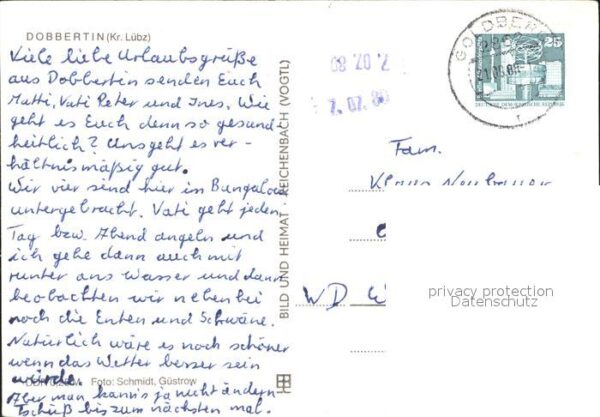 DOBBERTIN (Kr. Lübz)
Viele liebe Urlaubsgrüße
aus Dobbertin senden Euch
Mutti, Vati Peter und Ines. Wie
geht es Euch denn so gesund-
heitlich? Uns geht es ver-
hältnismäßig gut.
Wir vier sind hier im Bungalow
untergebracht. Vati geht jeden
Tag bzw. Abend angeln und
ich gehe dann auch mit
runter ans Wasser und dann
beobachten wir nebenbei
noch die Enten und Schwäne.
Natürlich wäre es noch schöner
wenn das Wetter besser sein
würde.
DDR Foto: Schmidt, Güstrow
Aber man kann's ja nicht ändern
Tschüß bis zum nächsten mal.
BILD UND HEIMAT REICHENBACH (VOGTL)
7. 07. 89
7. 07. 89
GOLDBERG
25
DEUTSCHE DEMOKRATISCHE REPUBLIK
Fam.
Klaus
WD
privacy protection
Datenschutz